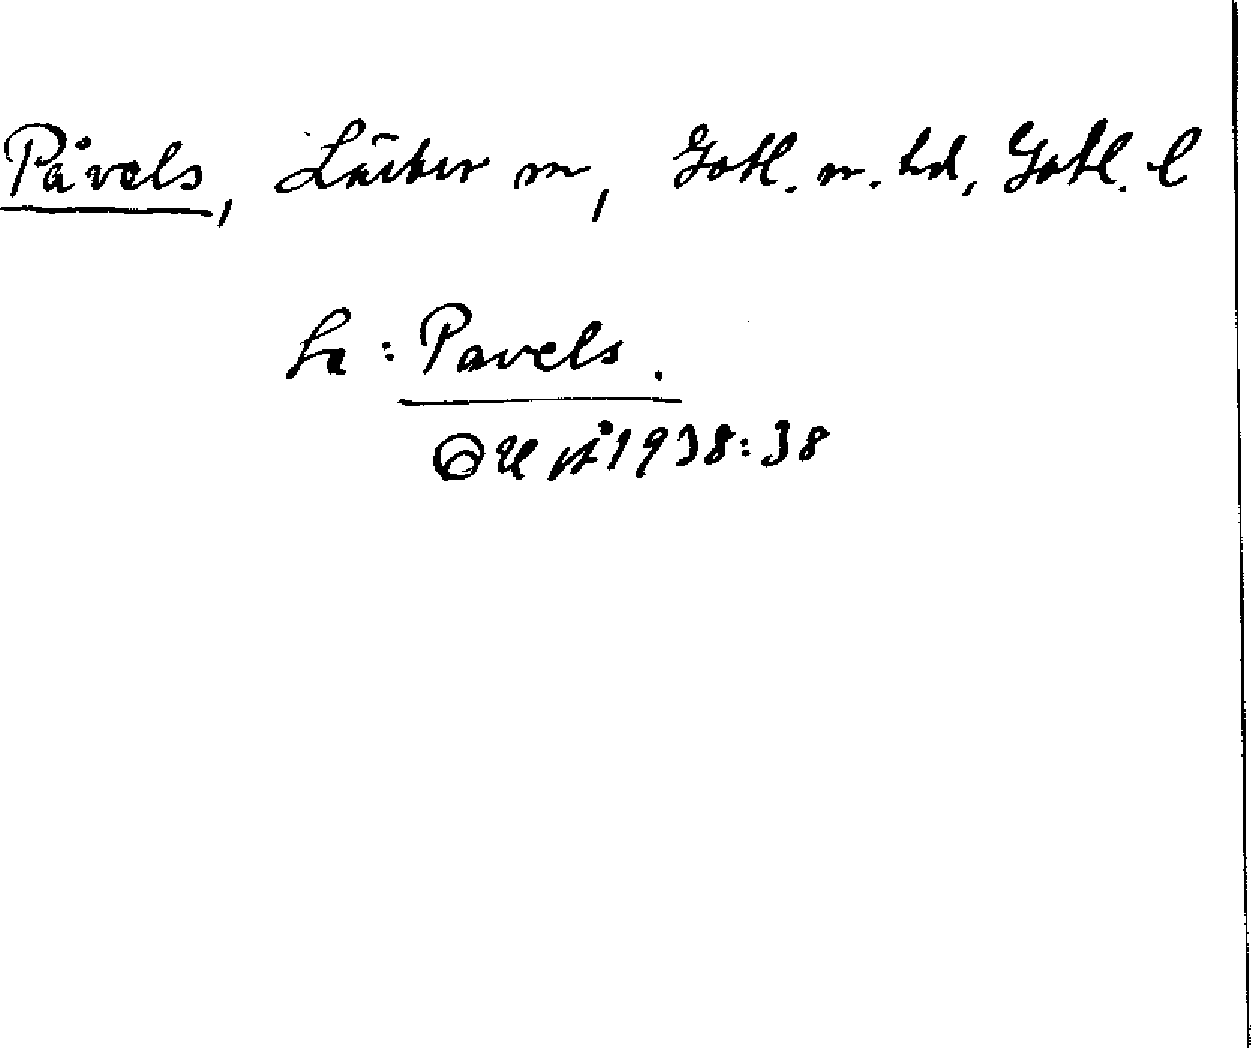 Påvels, Lärbro sn, Gotl. n. hd, Gotl. l
Le: Pavels.
OUÅ 1938:38